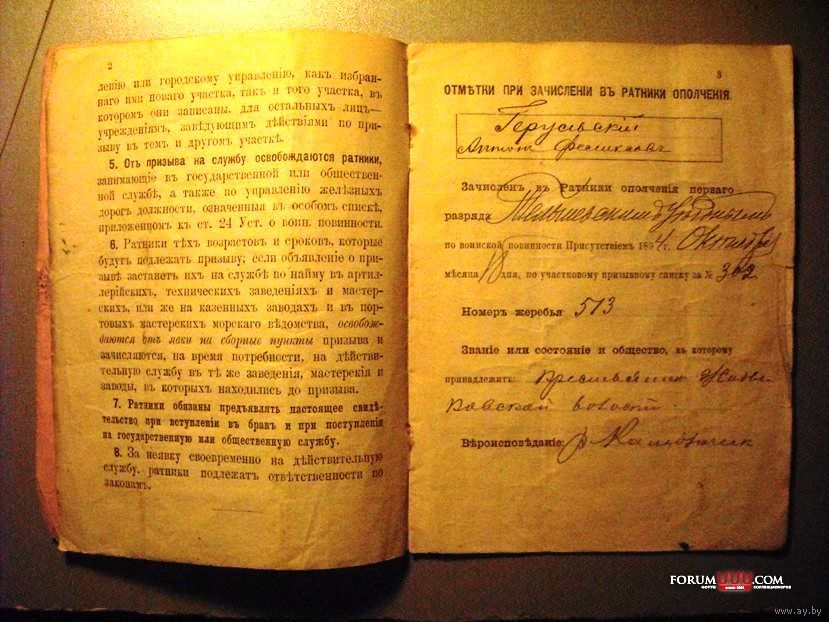 2
ленію или городскому управленію, какъ избран-
наго ими новаго участка, такъ и того участка, въ
которомъ они записаны, для остальныхъ лицъ—
учрежденіямъ, завѣдующимъ дѣйствіями по при-
зыву въ томъ и другомъ участкѣ.
5. Отъ призыва на службу освобождаются ратники,
занимающіе въ государственной или обществен-
ной службѣ, а также по управленію желѣзныхъ
дорогъ должности, означенныя въ особомъ спискѣ,
приложенномъ къ ст. 24 Уст. о воин. повинности.
6. Ратники тѣхъ возрастовъ и сроковъ, которые
будутъ подлежать призыву, если объявленіе о при-
зывѣ застанетъ ихъ на службѣ по найму въ артил-
лерійскихъ, техническихъ заведеніяхъ и мастер-
скихъ, или же на казенныхъ заводахъ и въ пор-
товыхъ мастерскихъ морскаго вѣдомства, освобож-
даются отъ явки на сборные пункты призыва и
зачисляются, на время потребности, на дѣйстви-
тельную службу въ тѣ же заведенія, мастерскія и
заводы, въ которыхъ находились до призыва.
7. Ратники обязаны предъявлять настоящее свидѣ-
тельство при вступленіи въ бракъ и при поступленіи
на государственную или общественную службу.
8. За неявку своевременно на дѣйствительную
службу, ратники подлежатъ отвѣтственности по
законамъ.
3
ОТМѢТКИ ПРИ ЗАЧИСЛЕНІИ ВЪ РАТНИКИ ОПОЛЧЕНІЯ.
Герульскій
Антонъ
Зачисленъ въ Ратники ополченія перваго
разряда Тельшевскимъ Уѣзднымъ
по воинской повинности Присутствіемъ 1894 г. Октября
мѣсяца 18 дня, по участковому призывному списку за № 302
Номеръ жеребья 513
Званіе или состояніе и общество, къ которому
принадлежитъ: крестьянинъ
волости
Вѣроисповѣданіе:
FORUMUUU.COM
ФОРУМ КОЛЛЕКЦИОНЕРОВ
www.ay.by